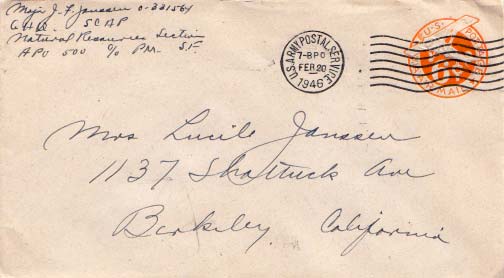 Major J. F. Janssen O-331564
G.H.Q. SCAP
Natural Resources Section
APO 500 c/o P.M. S.F.
U.S. ARMY POSTAL SERVICE
7-BPO
FEB 20
1946
U.S. POSTAGE
AIR MAIL
Mrs Lucile Janssen
1137 Shattuck Ave
Berkeley California